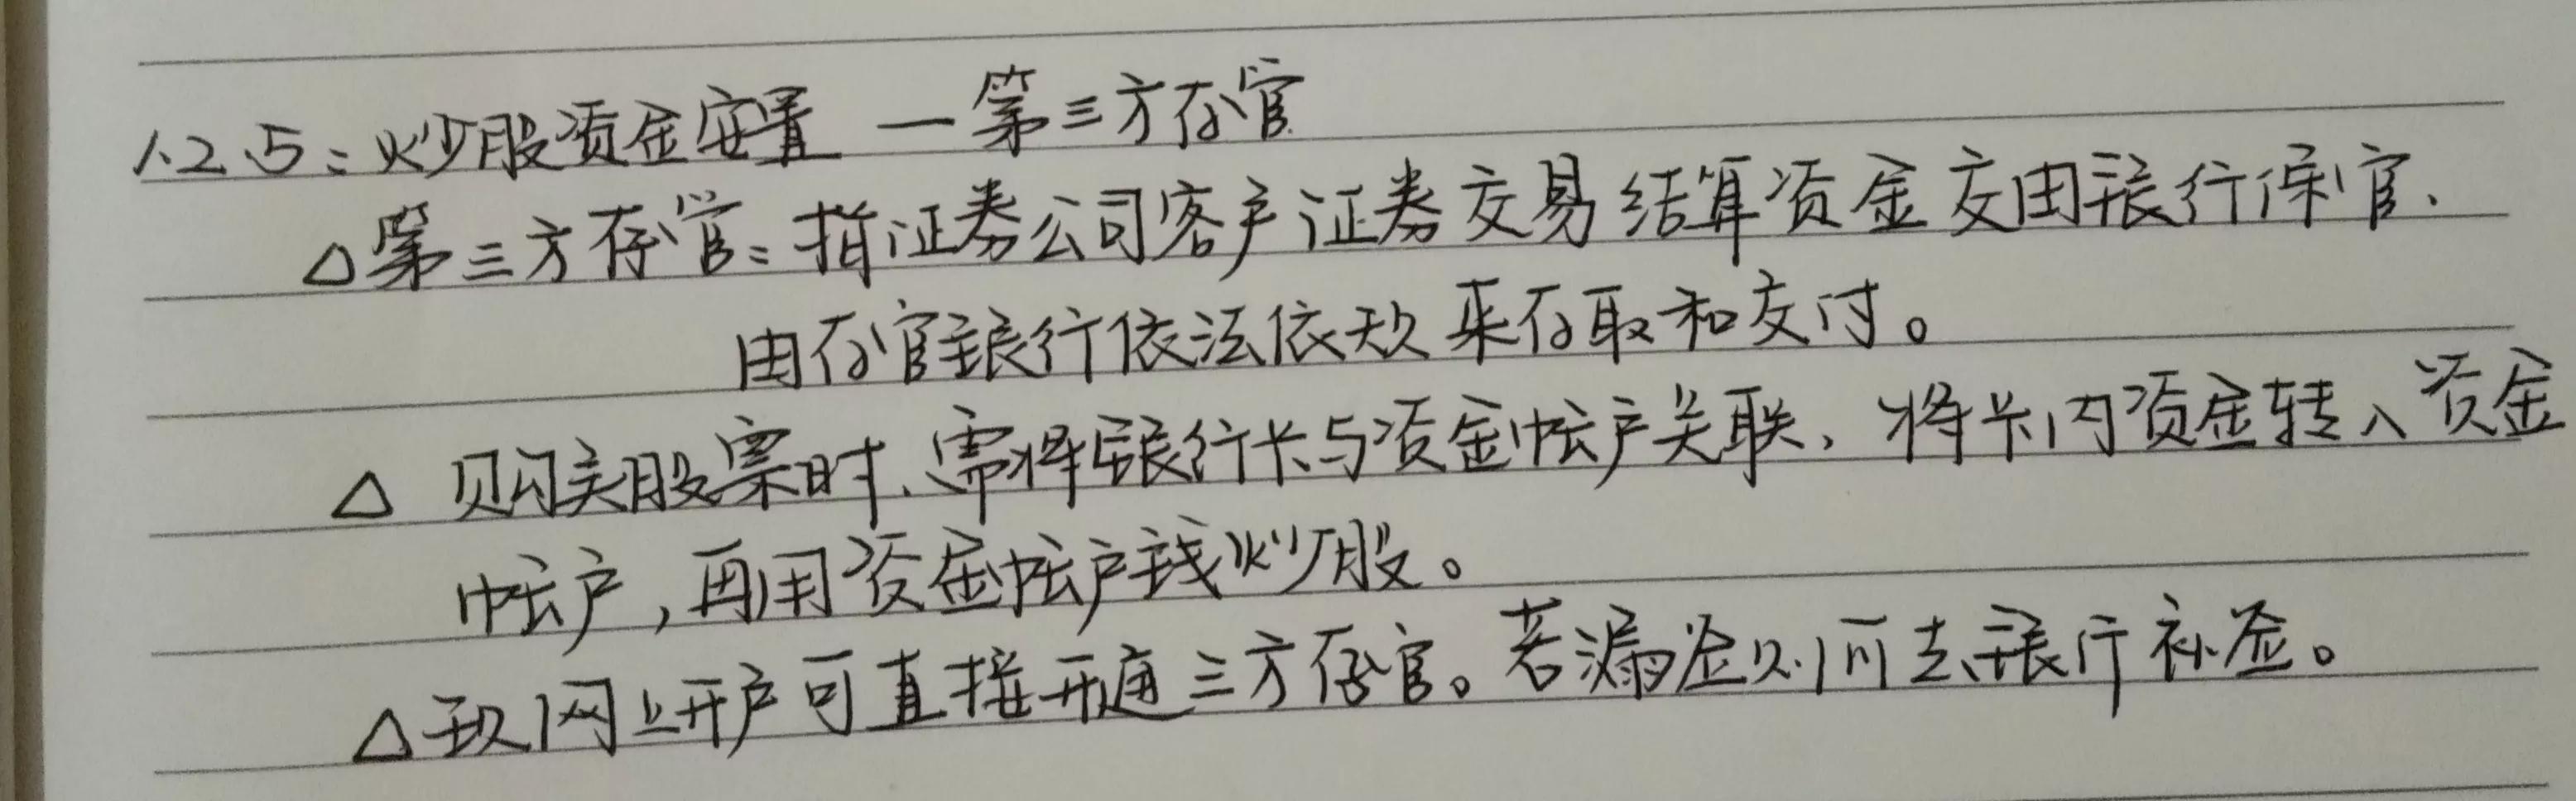 1.2.5：炒股资金安置 — 第三方存管
△第三方存管：指证券公司客户证券交易结算资金交由银行保管、
由存管银行依法依规来存取和交付。
△ 购买股票时、需将银行卡与资金帐户关联，将卡内资金转入资金
帐户，再用资金帐户钱炒股。
△现网上开户可直接开通三方存管。若漏签则可去银行补签。